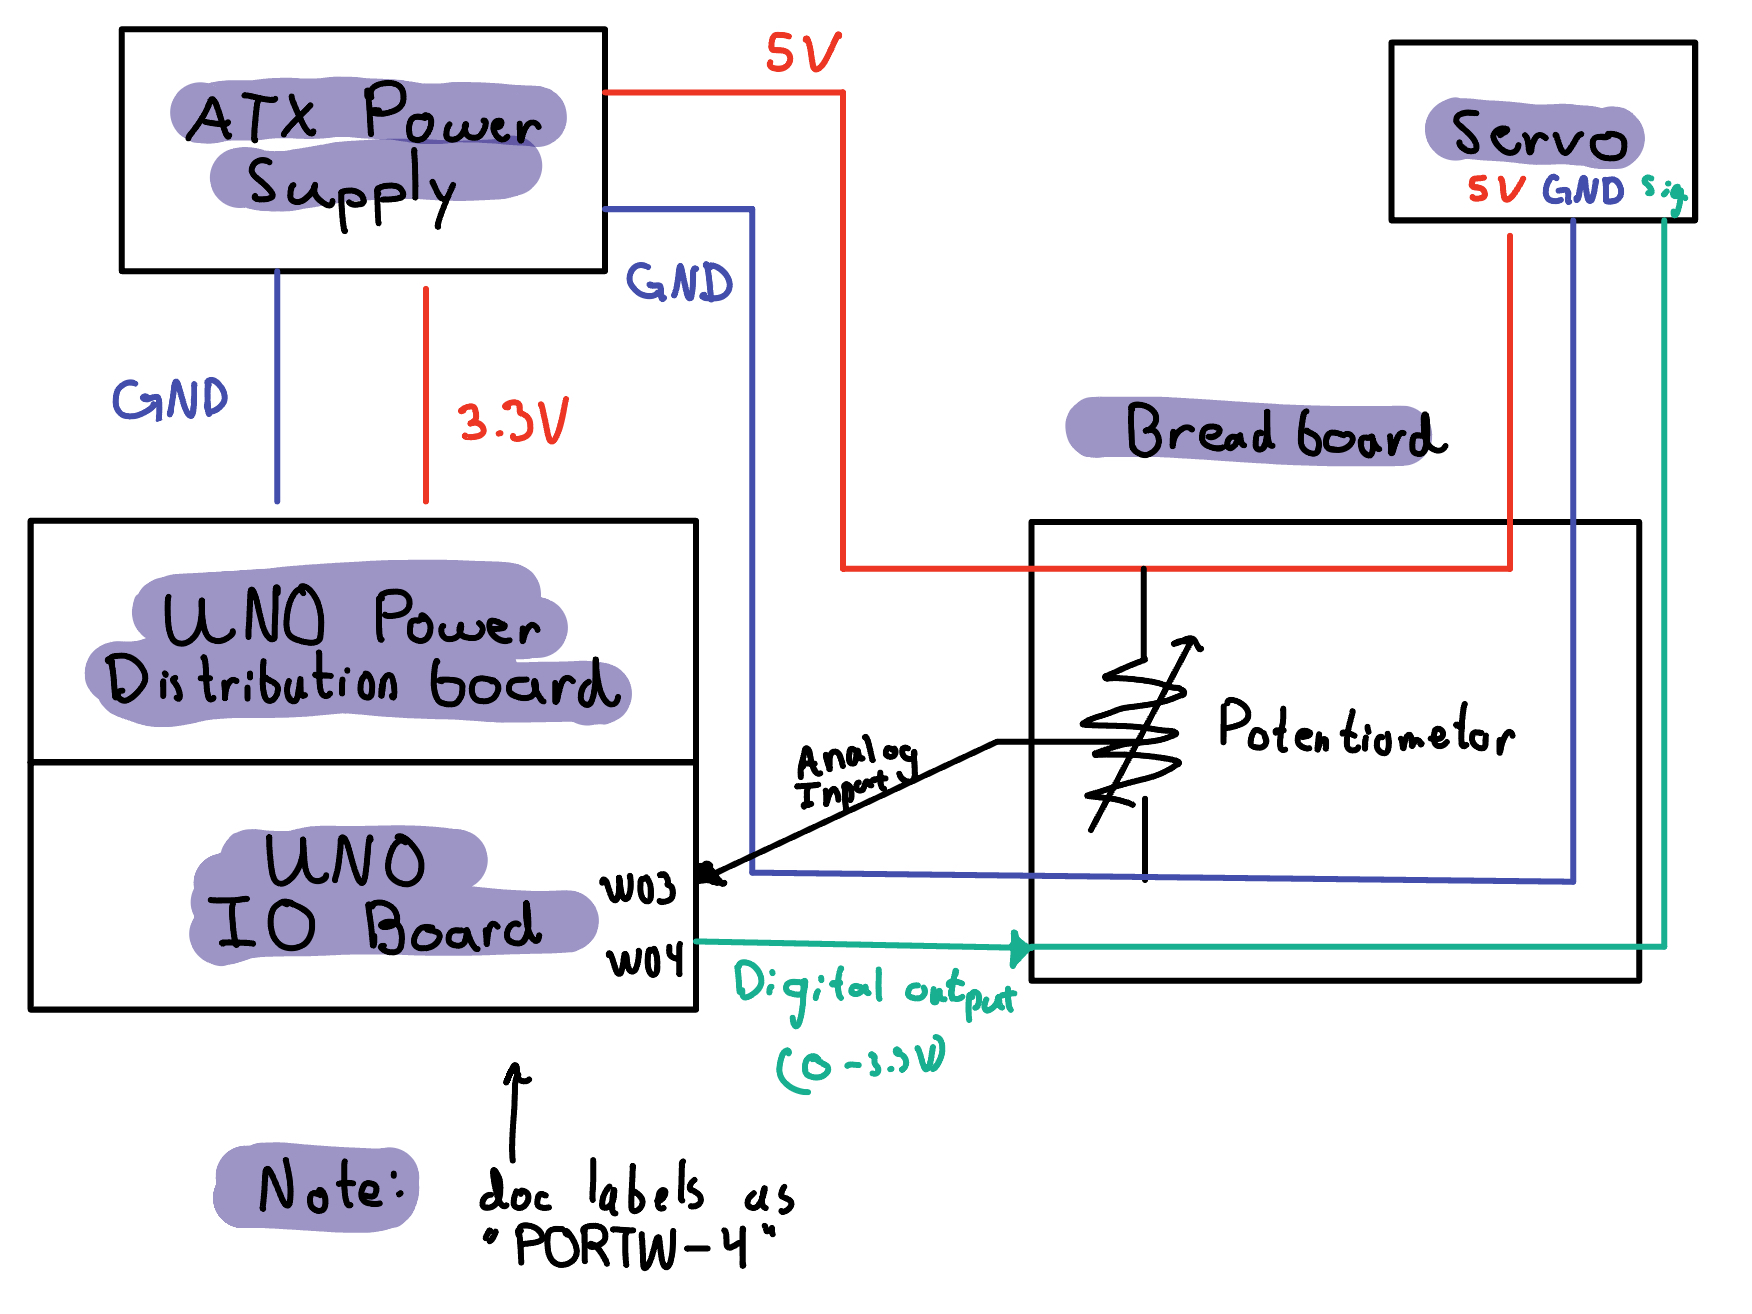 ATX Power
Supply
5V
GND
GND
3.3V
Servo
5V GND Sig.
Bread board
UNO Power
Distribution board
Potentiometor
Analog
Input
UNO
IO Board
W03
W04
Digital output
(0-3.3V)
Note:
doc labels as
"PORTW-4"